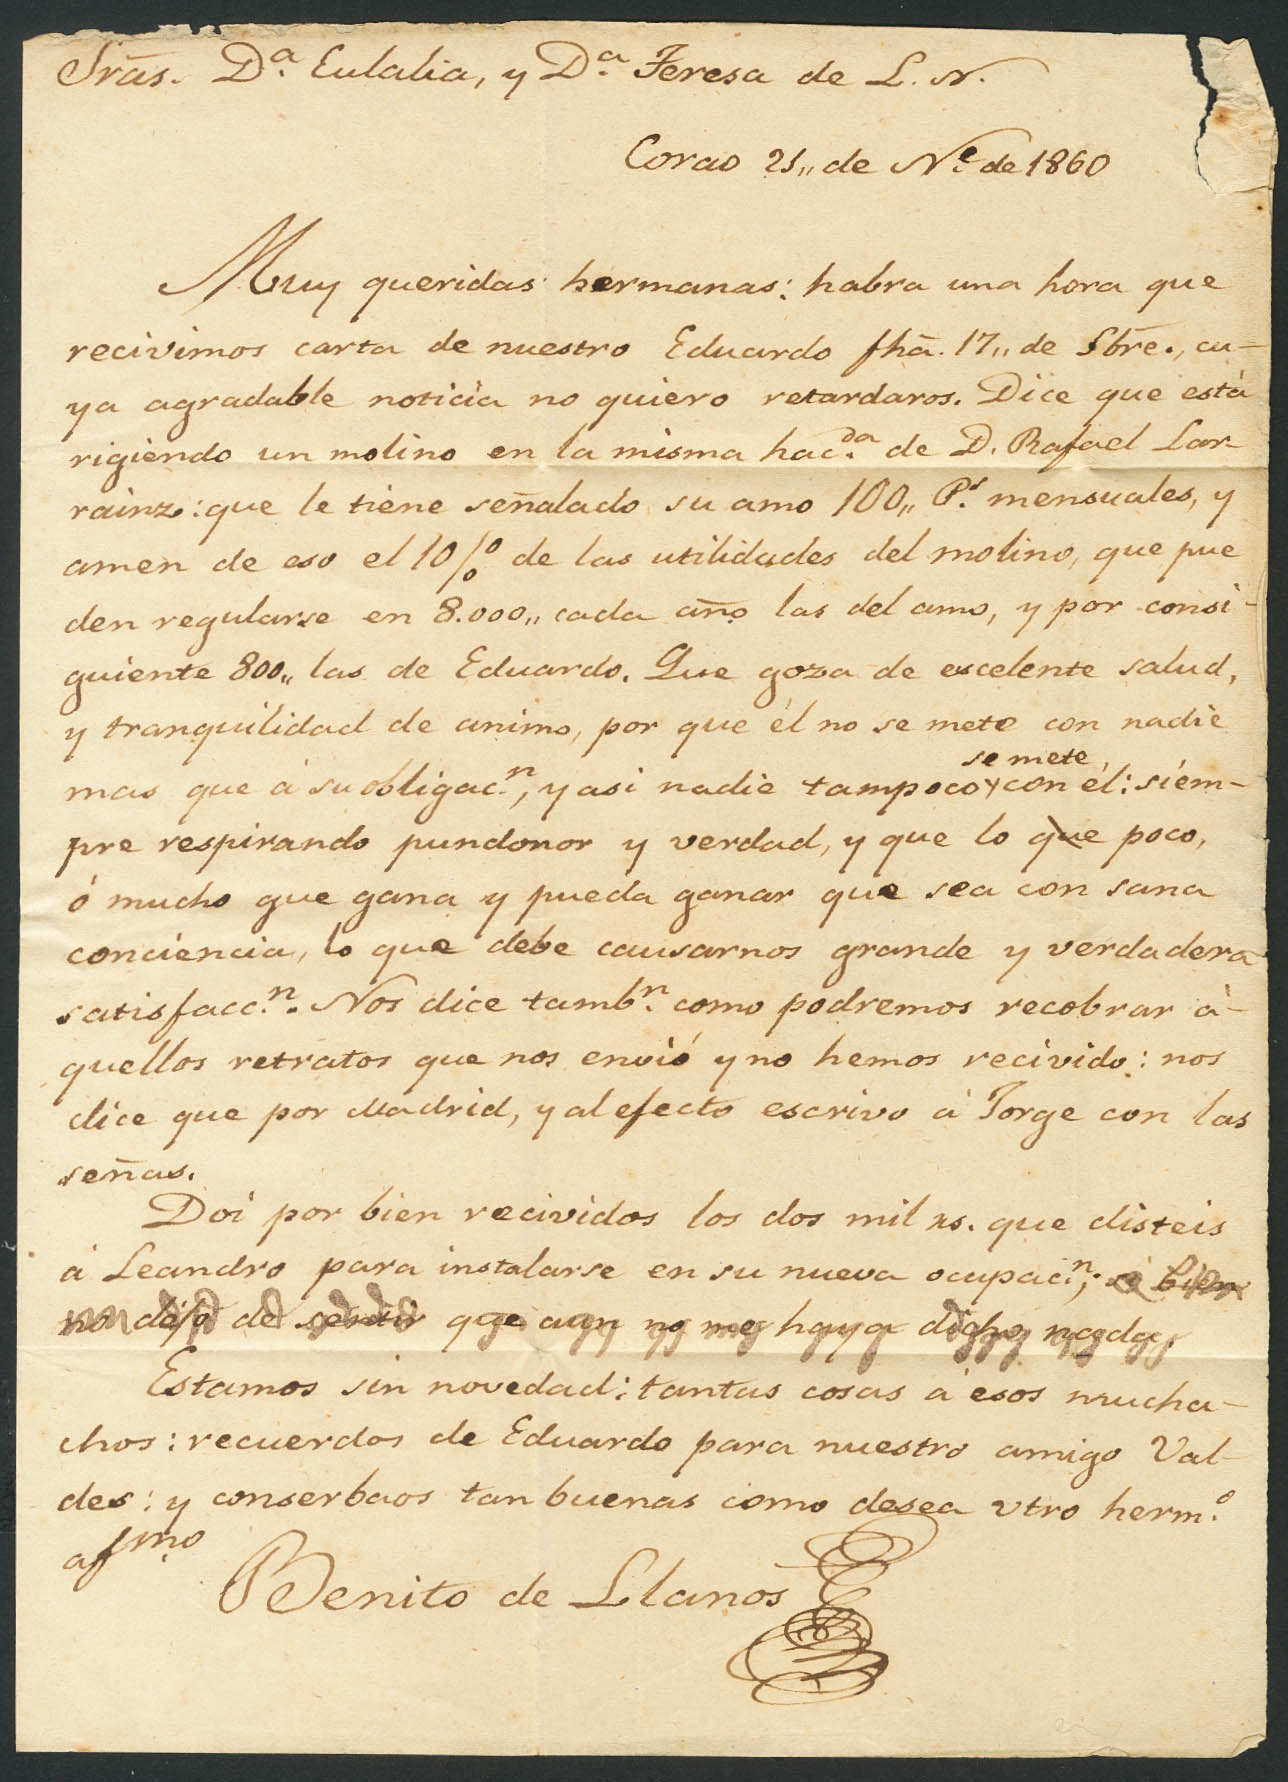 Srās. D.ª Eulalia, y D.ª Teresa de L. N.
Corao 21,, de N.e de 1860
Muy queridas hermanas: habra una hora que
recivimos carta de nuestro Eduardo fhā. 17,, de Sbre., cu-
ya agradable noticia no quiero retardaros. Dice que está
rigiendo un molino en la misma hac.da de D. Rafael Lar-
rainz: que le tiene señalado su amo 100,, P.s mensuales, y
amen de eso el 10 % de las utilidades del molino, que pue
den regularse en 8.000,, cada año las del amo, y por consi-
guiente 800,, las de Eduardo. Que goza de escelente salud,
y tranquilidad de animo, por que él no se mete con nadie
mas que á su obligac.n, y asi nadie tampoco se mete con él: siem-
pre respirando pundonor y verdad, y que lo que poco,
ó mucho que gana y pueda ganar que sea con sana
conciencia, lo que debe causarnos grande y verdadera
satisfacc.n. Nos dice tamb.n como podremos recobrar a-
quellos retratos que nos envió y no hemos recivido: nos
dice que por Madrid, y al efecto escrivo á Jorge con las
señas.
Doi por bien recividos los dos mil rs. que disteis
á Leandro para instalarse en su nueva ocupac.n, si bien
no dejo de sentir que aun no me haya dicho nada.
Estamos sin novedad: tantas cosas á esos mucha-
chos: recuerdos de Eduardo para nuestro amigo Val-
des: y conserbaos tan buenas como desea vtro herm.º
af.mo
Benito de Llanos